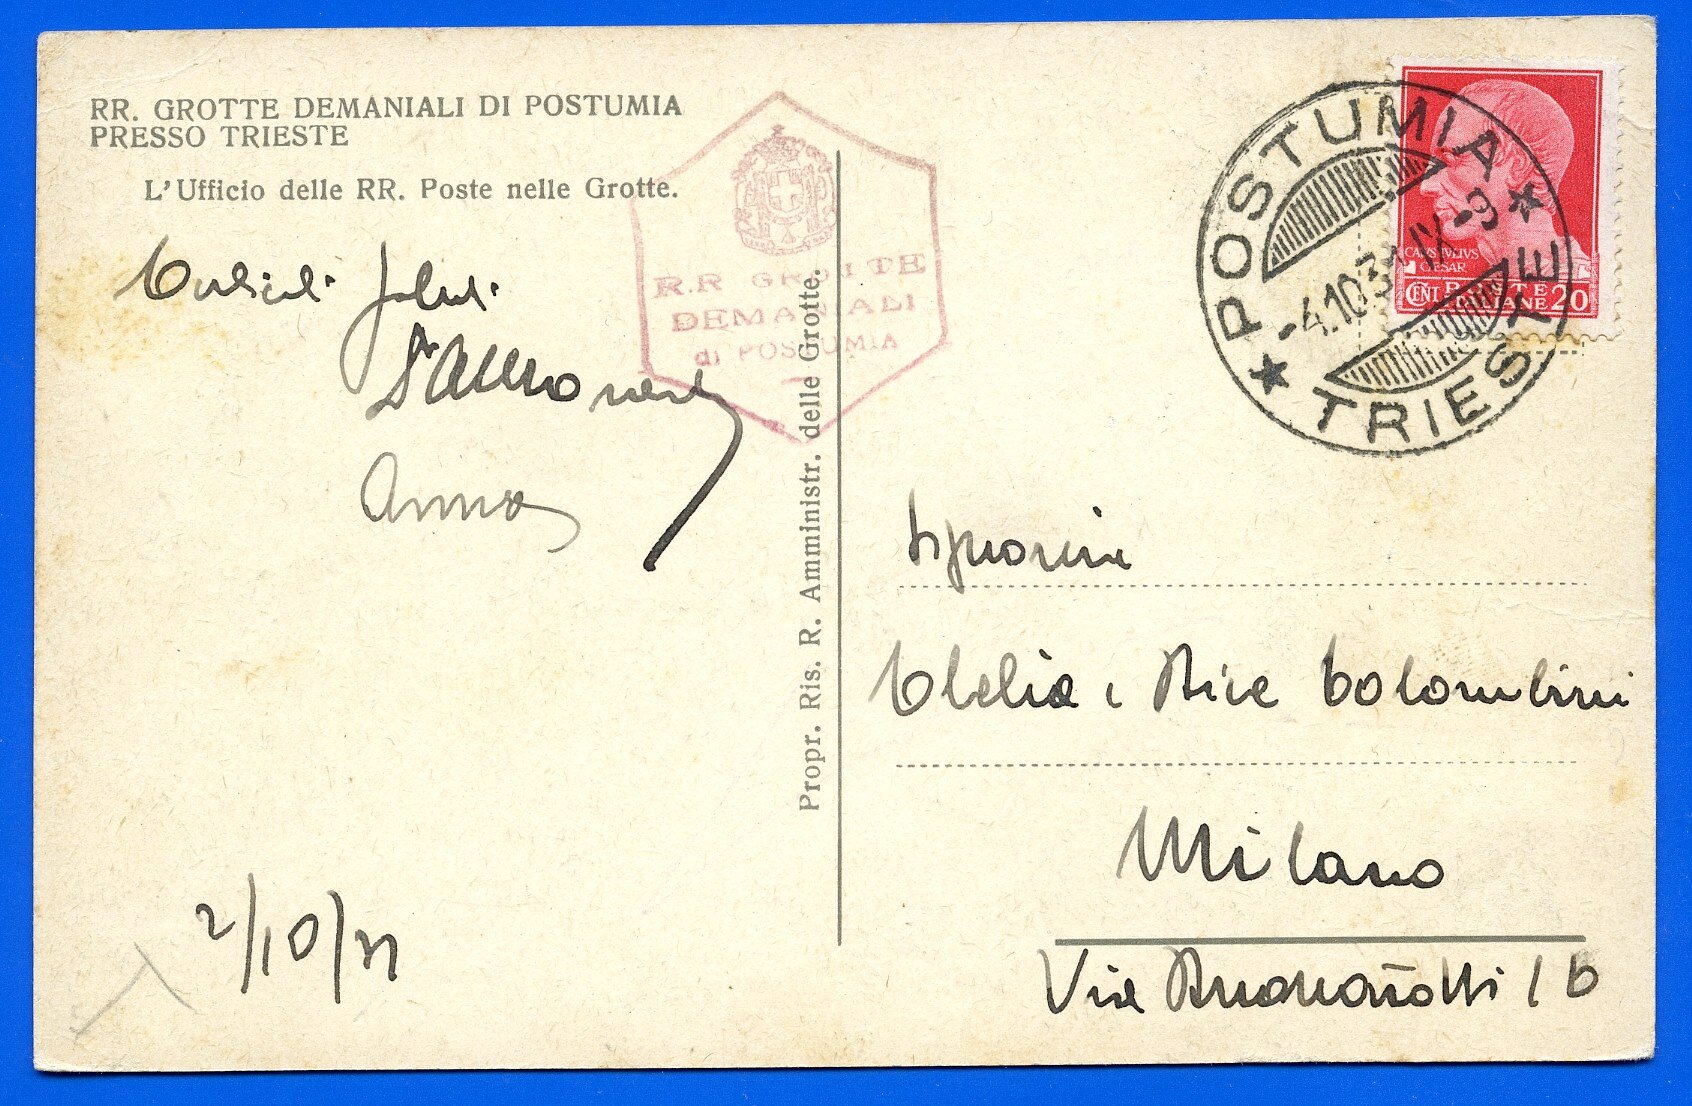 RR. GROTTE DEMANIALI DI POSTUMIA
PRESSO TRIESTE
L'Ufficio delle RR. Poste nelle Grotte.
Anna
2/10/31
R.R GROTTE
DEMANIALI
di POSTUMIA
Propr. Ris. R. Amministr. delle Grotte.
POSTUMIA
-4.10.31 IX-9
TRIESTE
CAIUS IVLIVS
CÆSAR
CENT 20
POSTE
ITALIANE
Signorine
Clelia e Bice Colombini
Milano
Via Buonarroti 16